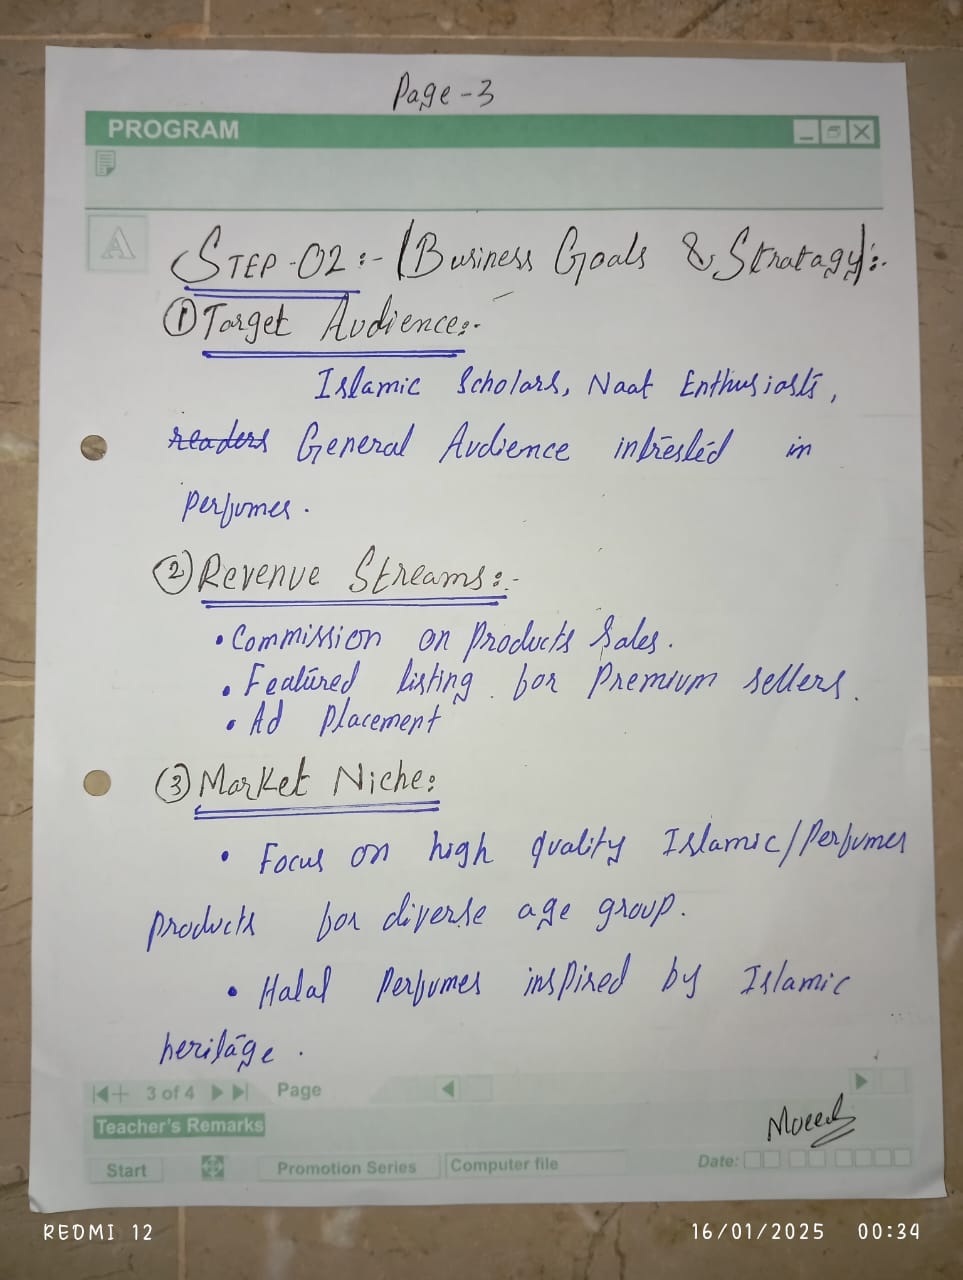 Page-3
PROGRAM
A
STEP-02:- (Business Goals & Stratagy):-
① Target Audience:-
Islamic Scholars, Naat Enthusiasts,
readers General Audience intrested in
Perfumes.
② Revenue Streams:-
• Commission on Products Sales.
• Featured listing for Premium sellers.
• Ad Placement
③ Market Niche:
• Focus on high quality Islamic/Perfumes
Products for diverse age group.
• Halal Perfumes inspired by Islamic
heritage.
3 of 4 Page
Teacher's Remarks
Start Promotion Series Computer file Date:
REDMI 12 16/01/2025 00:34